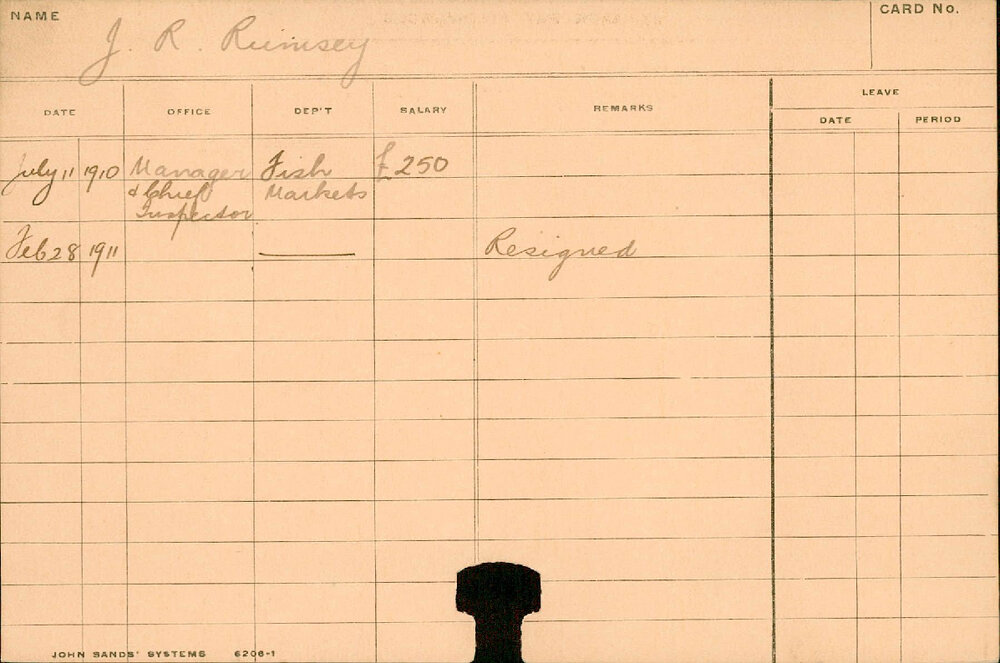 NAME J. R. Rumsey CARD No.
LEAVE
DATE OFFICE DEP'T SALARY REMARKS
DATE PERIOD
July 11 1910 Manager Fish £250
& Chief Markets
Inspector
Feb 28 1911 Resigned
JOHN SANDS' SYSTEMS 6206-1